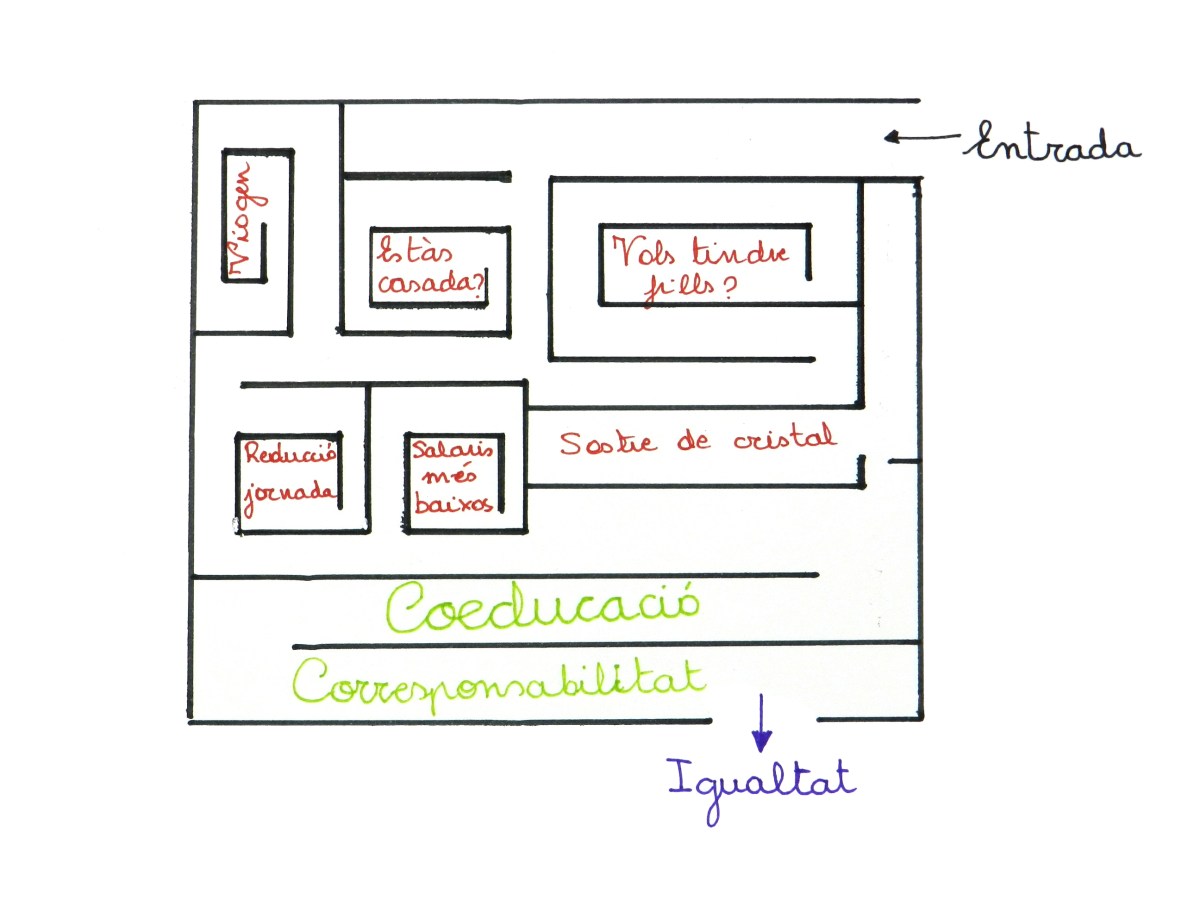 Entrada
Viogen
Estàs
casada?
Vols tindre
fills?
Sostre de cristal
Reducció
jornada
Salaris
més
baixos
Coeducació
Corresponsabilitat
Igualtat